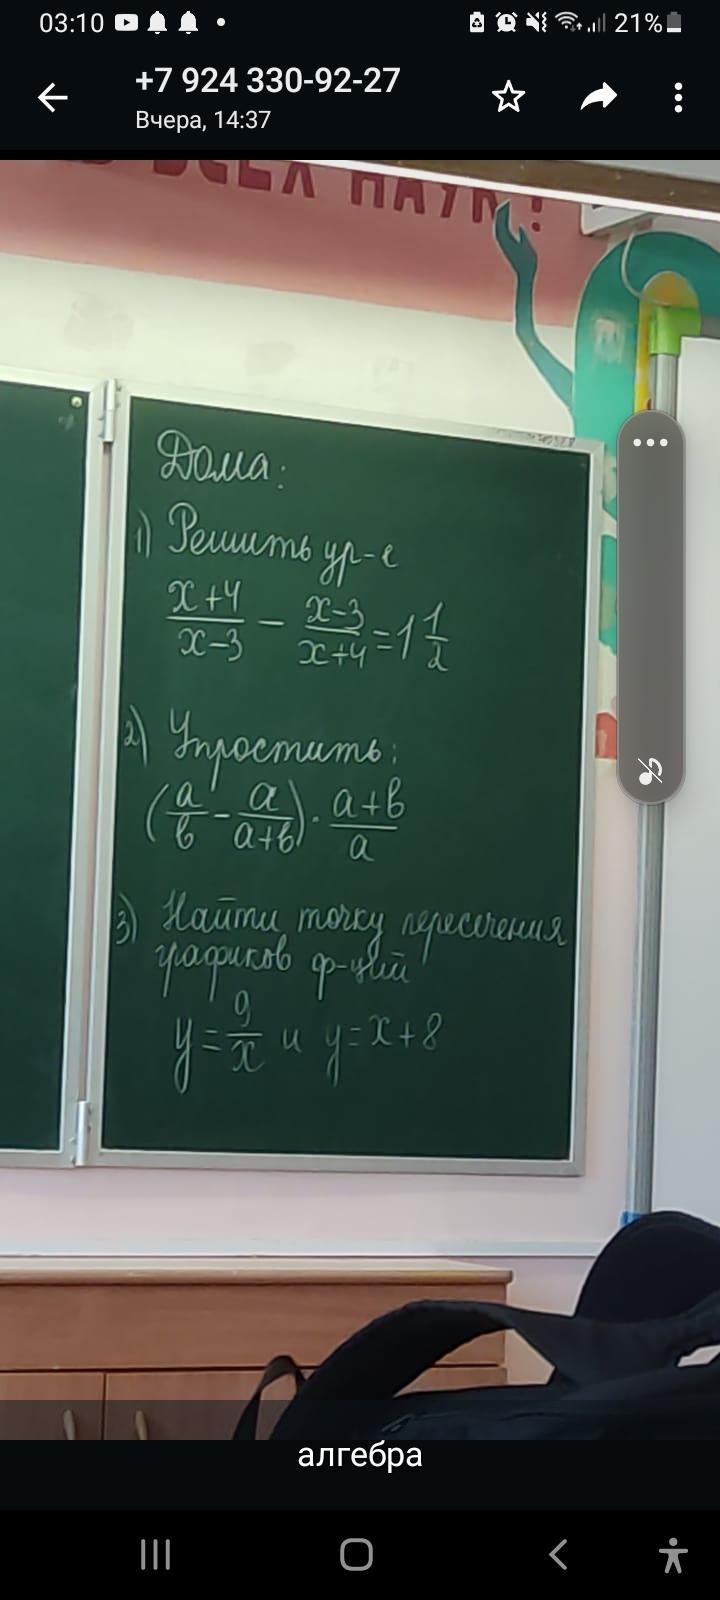 03:10
21%
+7 924 330-92-27
Вчера, 14:37
ВСЕХ НАУК!
Дома:
1) Решить ур-е
x+4/x-3 - x-3/x+4 = 1 1/2
2) Упростить:
(a/b - a/a+b) · a+b/a
3) Найти точку пересечения
графиков ф-ций
y = 9/x и y = x + 8
алгебра